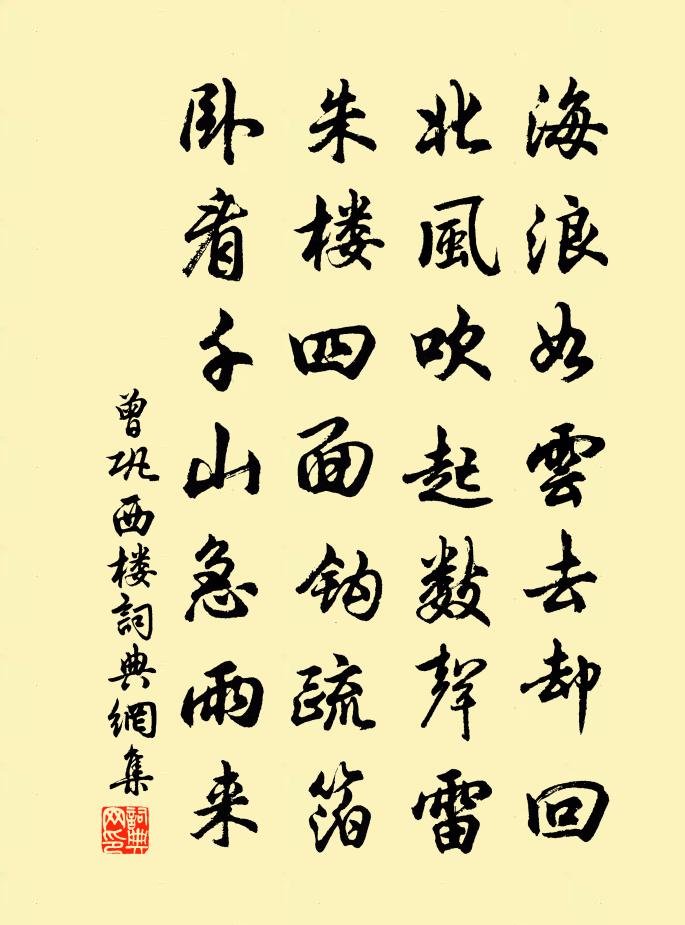 海浪如雲去却回
北風吹起数聲雷
朱楼四面鈎疏箔
卧看千山急雨来
曾巩西楼詞典網集
詞典
网印